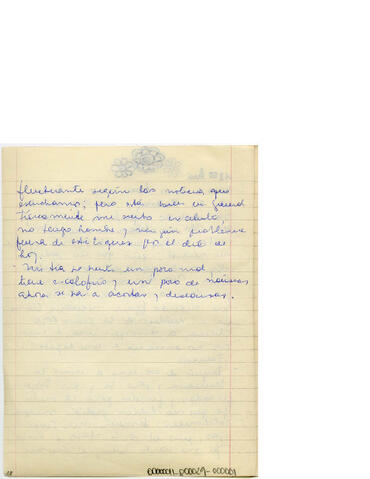 fluctuante según las noticias que
escuchamos; pero está bien en general
físicamente me siento excelente,
no tengo hambre y ningún problema
fuera de estítiquez por el día de
hoy.
- Mi tía se siente un poco mal,
tiene escalofrío y un poco de náuseas
ahora se va a acostar y descansar.
18
000014-000029-000001